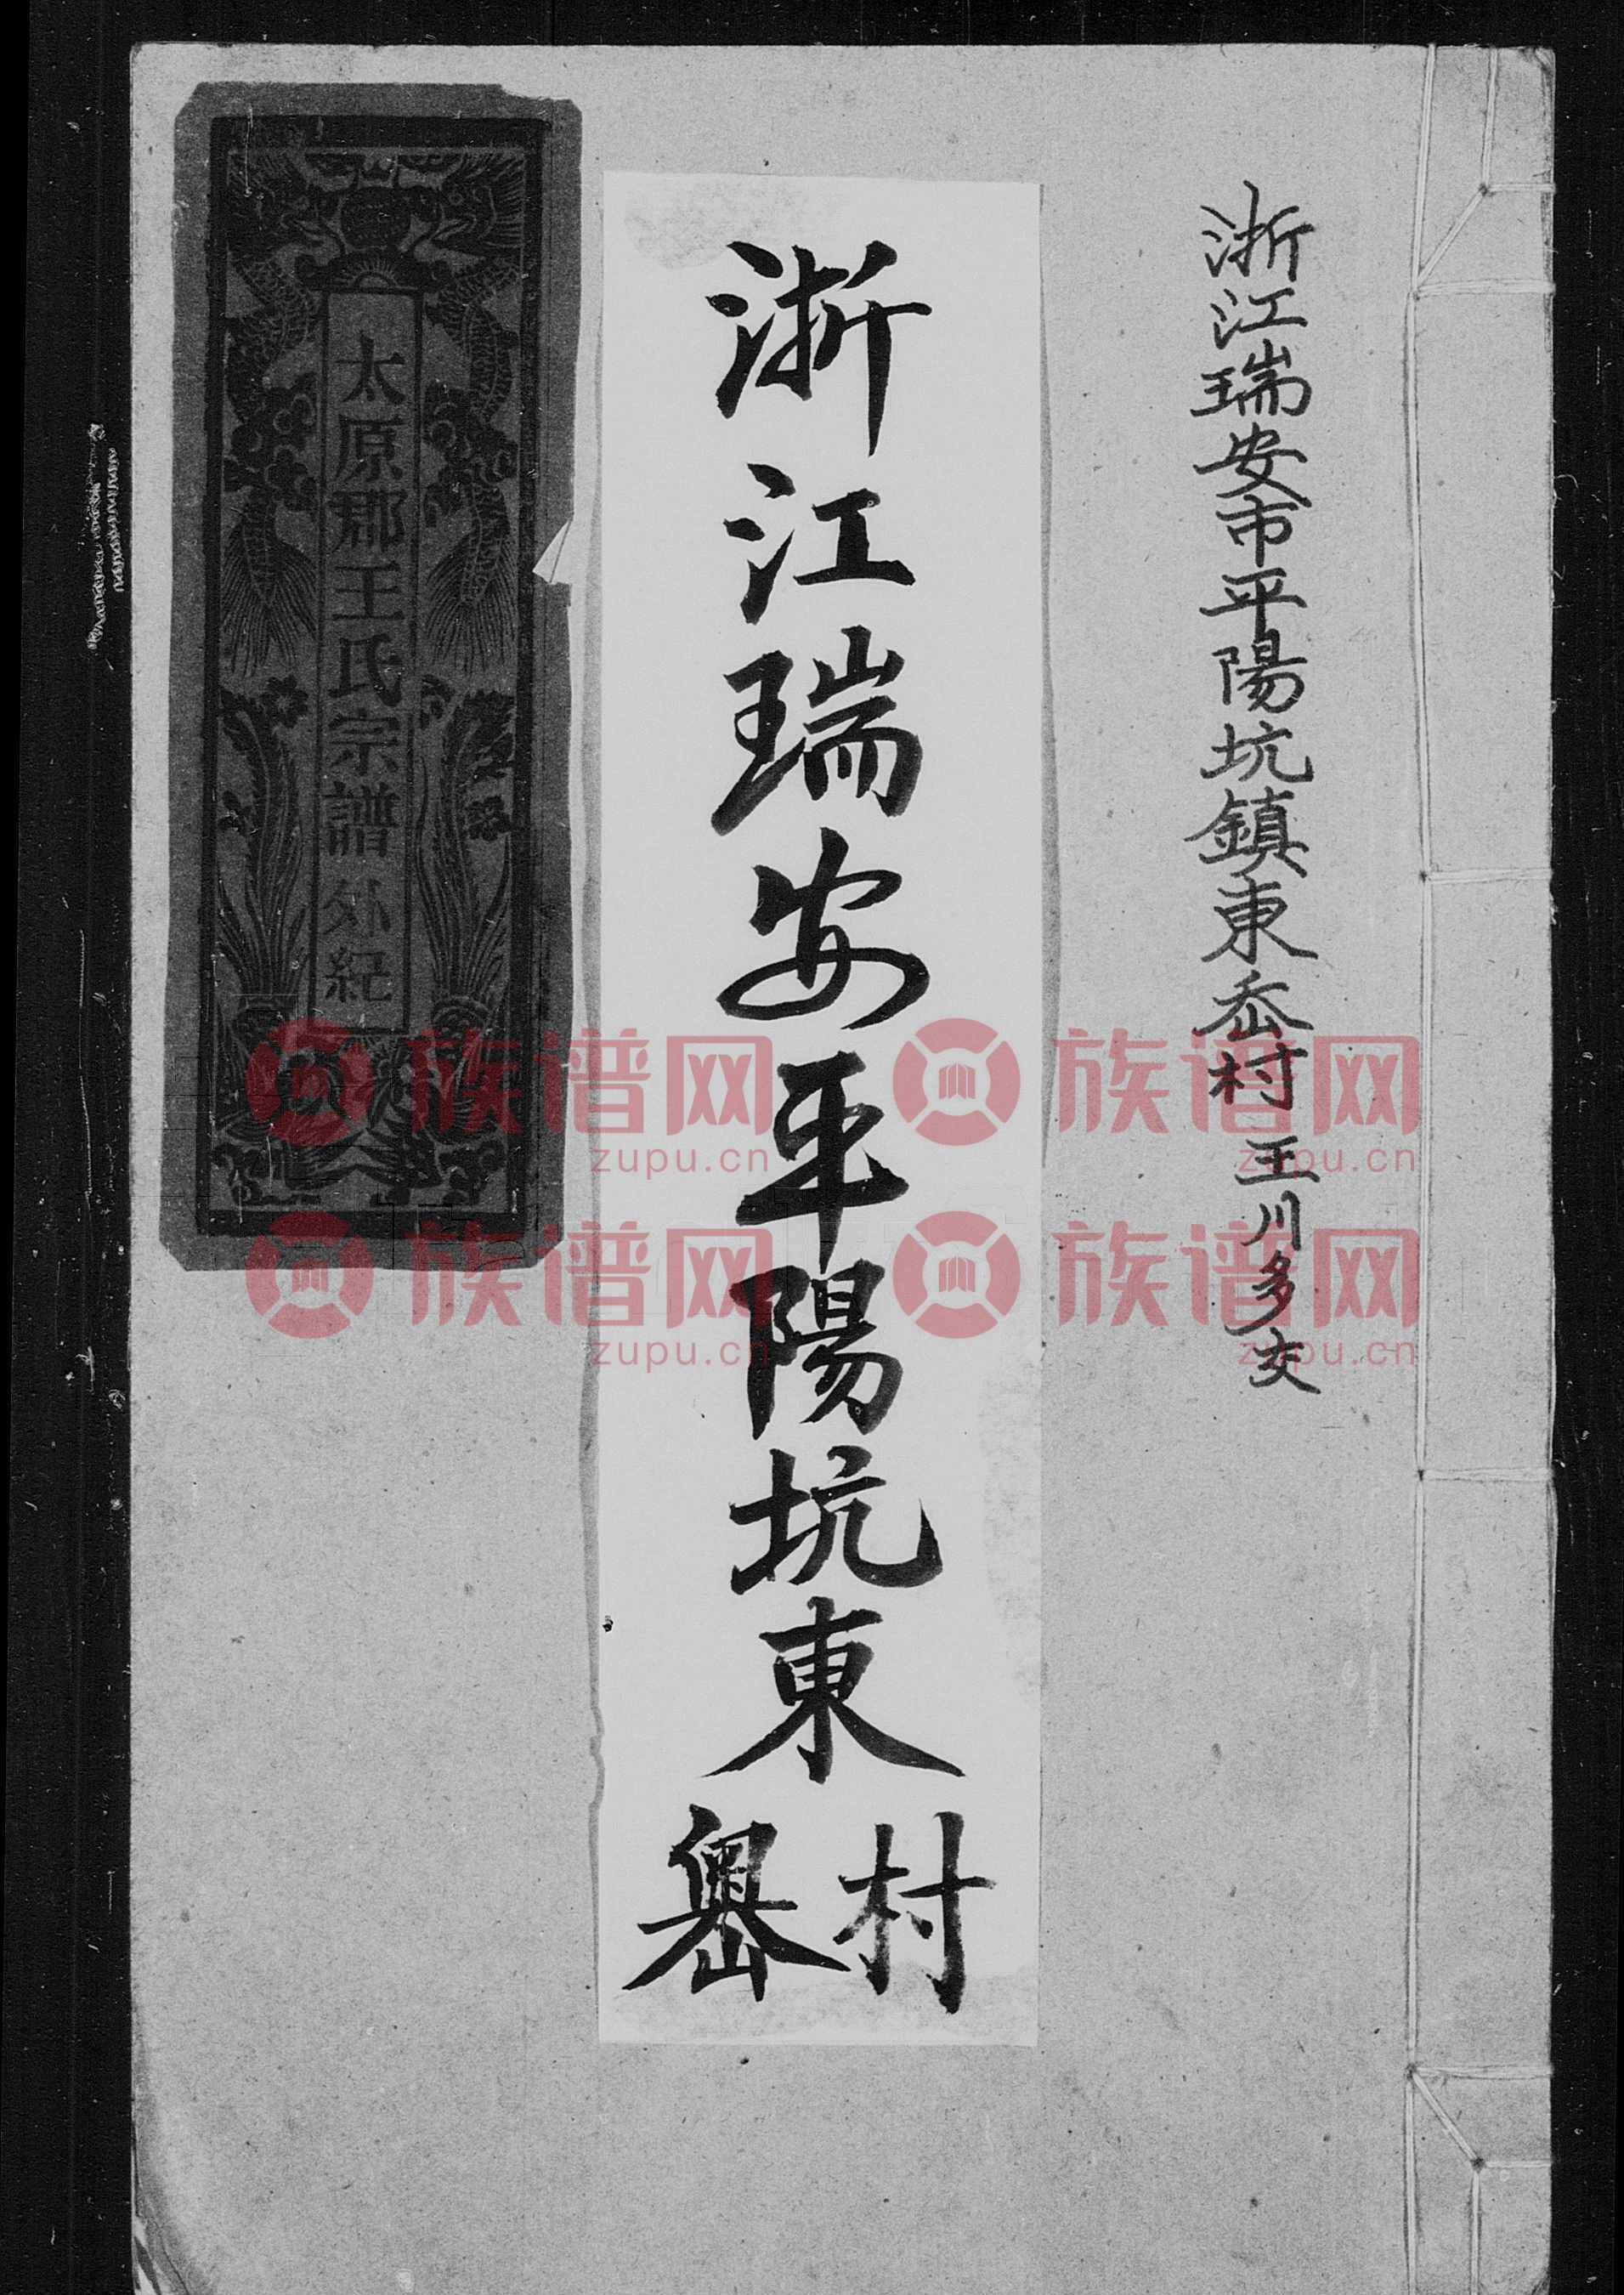 浙江瑞安市平陽坑鎮東岙村 王川多交
浙江瑞安平陽坑東
村
嶴
太原郡王氏宗譜外紀
族谱网 族谱网
zupu.cn zupu.cn
族谱网 族谱网
zupu.cn zupu.cn